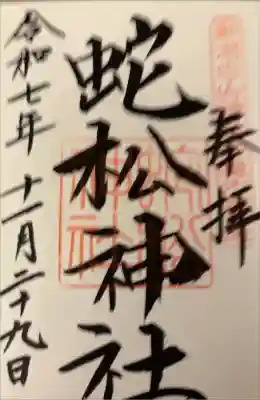 奉拝
蛇松神社
令和七年十一月二十九日